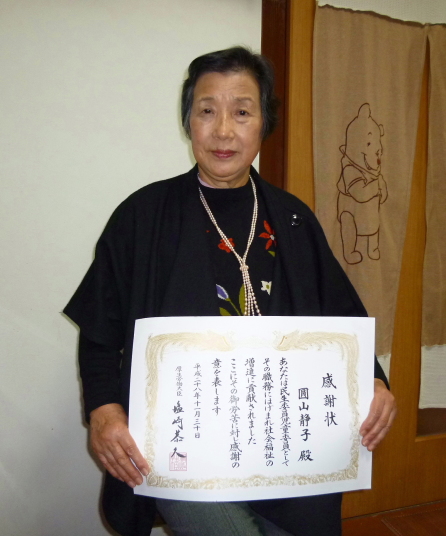 感謝状
圓山靜子 殿
あなたは民生委員児童委員として
その職務にはげまれ社会福祉の
増進に貢献されました
ここにその御労苦に対し感謝の
意を表します
平成二十八年十一月三十日
厚生労働大臣 塩崎恭久